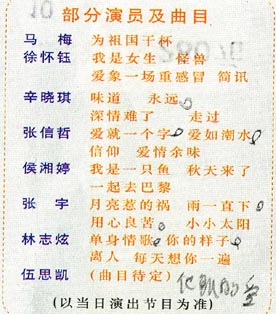 部分演员及曲目
马 梅 为祖国干杯
徐怀钰 我是女生 怪兽
爱象一场重感冒 简讯
辛晓琪 味道 永远
深情难了 走过
张信哲 爱就一个字 爱如潮水
信仰 爱情余味
侯湘婷 我是一只鱼 秋天来了
一起去巴黎
张 宇 月亮惹的祸 雨一直下
用心良苦 小小太阳
林志炫 单身情歌 你的样子
离人 每天想你一遍
伍思凯 (曲目待定)
(以当日演出节目为准)